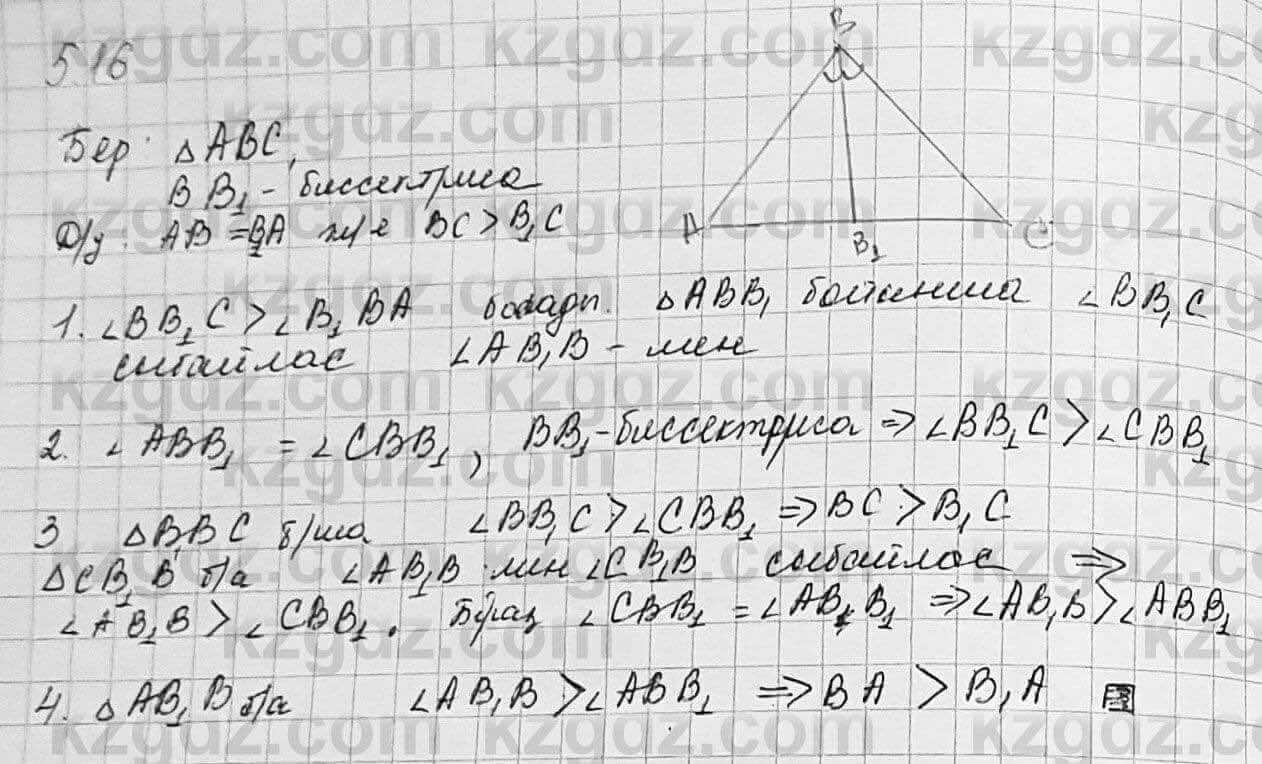 5.16
Бер: △ABC,
BB₁ - биссектриса
D/y: AB = B₂A ж/е BC > B₁C
B
A
B₁
C
1. ∠BB₁C > ∠B₁BA болады. △ABB₁ бойынша ∠BB₁C
сыбайлас ∠AB₁B - мен
2. ∠ABB₁ = ∠CBB₁, BB₁-биссектриса ⇒ ∠BB₁C > ∠CBB₁
3 △B₁BC б/ша ∠BB₁C > ∠CBB₁ ⇒ BC > B₁C
△CB₁B б/а ∠AB₁B мен ∠CB₁B сыбайлас ⇒
∠AB₁B > ∠CBB₁. Бірақ ∠CBB₁ = ∠AB₁B₁ ⇒ ∠AB₁B > ∠ABB₁
4. △AB₁B б/а ∠AB₁B > ∠ABB₁ ⇒ BA > B₁A
kzgdz.com